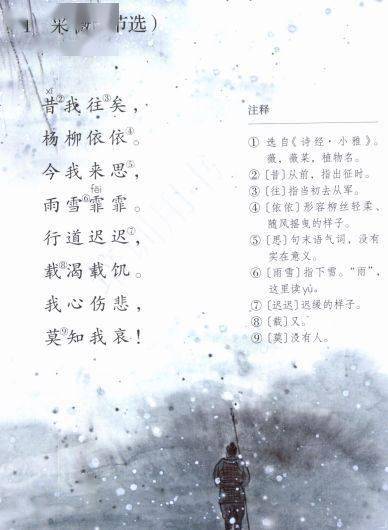 1 米 节选）
xī
昔②我往③矣，
杨柳依依④。
今我来思⑤，
fēi
雨雪⑥霏霏。
行道迟迟⑦，
载⑧渴载饥。
我心伤悲，
莫⑨知我哀！
注释
① 选自《诗经·小雅》。
薇，薇菜，植物名。
② [昔] 从前，指出征时。
③ [往] 指当初去从军。
④ [依依] 形容柳丝轻柔、
随风摇曳的样子。
⑤ [思] 句末语气词，没有
实在意义。
⑥ [雨雪] 指下雪。“雨”，
这里读yù。
⑦ [迟迟] 迟缓的样子。
⑧ [载] 又。
⑨ [莫] 没有人。